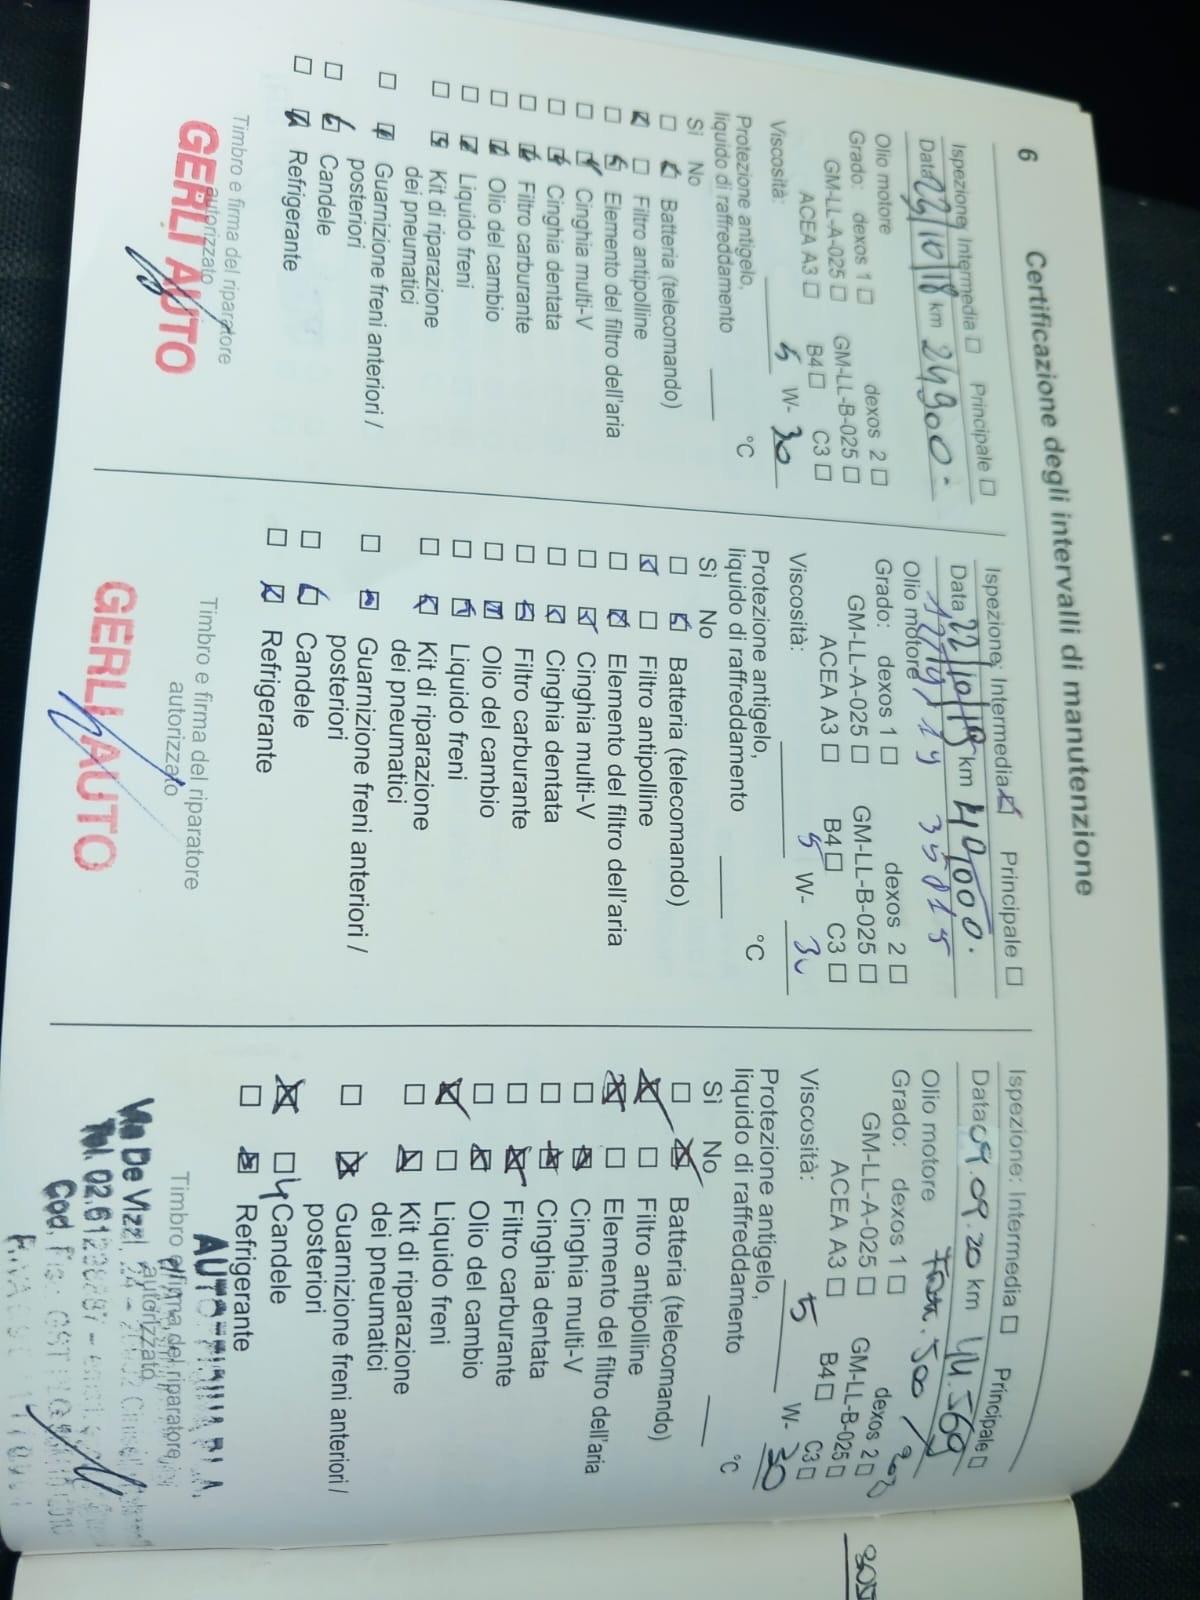 6
Certificazione degli intervalli di manutenzione
Ispezione: Intermedia ☐ Principale ☐
Data 23/10/18 km 24900.
Olio motore
Grado: dexos 1 ☐ dexos 2 ☐
GM-LL-A-025 ☐ GM-LL-B-025 ☐
ACEA A3 ☐ B4 ☐ C3 ☐
Viscosità: 5 W- 30
Protezione antigelo,
liquido di raffreddamento ____ °C
Sì No
☐ ☑ Batteria (telecomando)
☒ ☐ Filtro antipolline
☐ ☑ Elemento del filtro dell'aria
☐ ☑ Cinghia multi-V
☐ ☑ Cinghia dentata
☐ ☑ Filtro carburante
☐ ☑ Olio del cambio
☐ ☑ Liquido freni
☐ ☑ Kit di riparazione
dei pneumatici
☐ ☑ Guarnizione freni anteriori /
posteriori
☐ ☑ Candele
☐ ☑ Refrigerante
Timbro e firma del riparatore
autorizzato
GERLI AUTO
Ispezione: Intermedia ☑ Principale ☐
Data 22/10/19 km 40000.
Olio motore 35015
Grado: dexos 1 ☐ dexos 2 ☐
GM-LL-A-025 ☐ GM-LL-B-025 ☐
ACEA A3 ☐ B4 ☐ C3 ☐
Viscosità: 5 W- 30
Protezione antigelo,
liquido di raffreddamento ____ °C
Sì No
☐ ☑ Batteria (telecomando)
☑ ☐ Filtro antipolline
☐ ☒ Elemento del filtro dell'aria
☐ ☑ Cinghia multi-V
☐ ☑ Cinghia dentata
☐ ☑ Filtro carburante
☐ ☑ Olio del cambio
☐ ☑ Liquido freni
☐ ☑ Kit di riparazione
dei pneumatici
☐ ☑ Guarnizione freni anteriori /
posteriori
☐ ☑ Candele
☐ ☒ Refrigerante
Timbro e firma del riparatore
autorizzato
GERLI AUTO
Ispezione: Intermedia ☐ Principale ☐
Data 09.09.20 km 44.569
Olio motore
Grado: dexos 1 ☐ dexos 2 ☐
GM-LL-A-025 ☐ GM-LL-B-025 ☐
ACEA A3 ☐ B4 ☐ C3 ☐
Viscosità: 5 W- 30
Protezione antigelo,
liquido di raffreddamento ____ °C
Sì No
☐ ☒ Batteria (telecomando)
☒ ☐ Filtro antipolline
☒ ☐ Elemento del filtro dell'aria
☐ ☒ Cinghia multi-V
☐ ☒ Cinghia dentata
☐ ☒ Filtro carburante
☐ ☒ Olio del cambio
☒ ☐ Liquido freni
☐ ☒ Kit di riparazione
dei pneumatici
☐ ☒ Guarnizione freni anteriori /
posteriori
☒ ☐ 4 Candele
☐ ☒ Refrigerante
Timbro e firma del riparatore
autorizzato
Via De Vizzi, 24
Tel. 02.612
Cod.